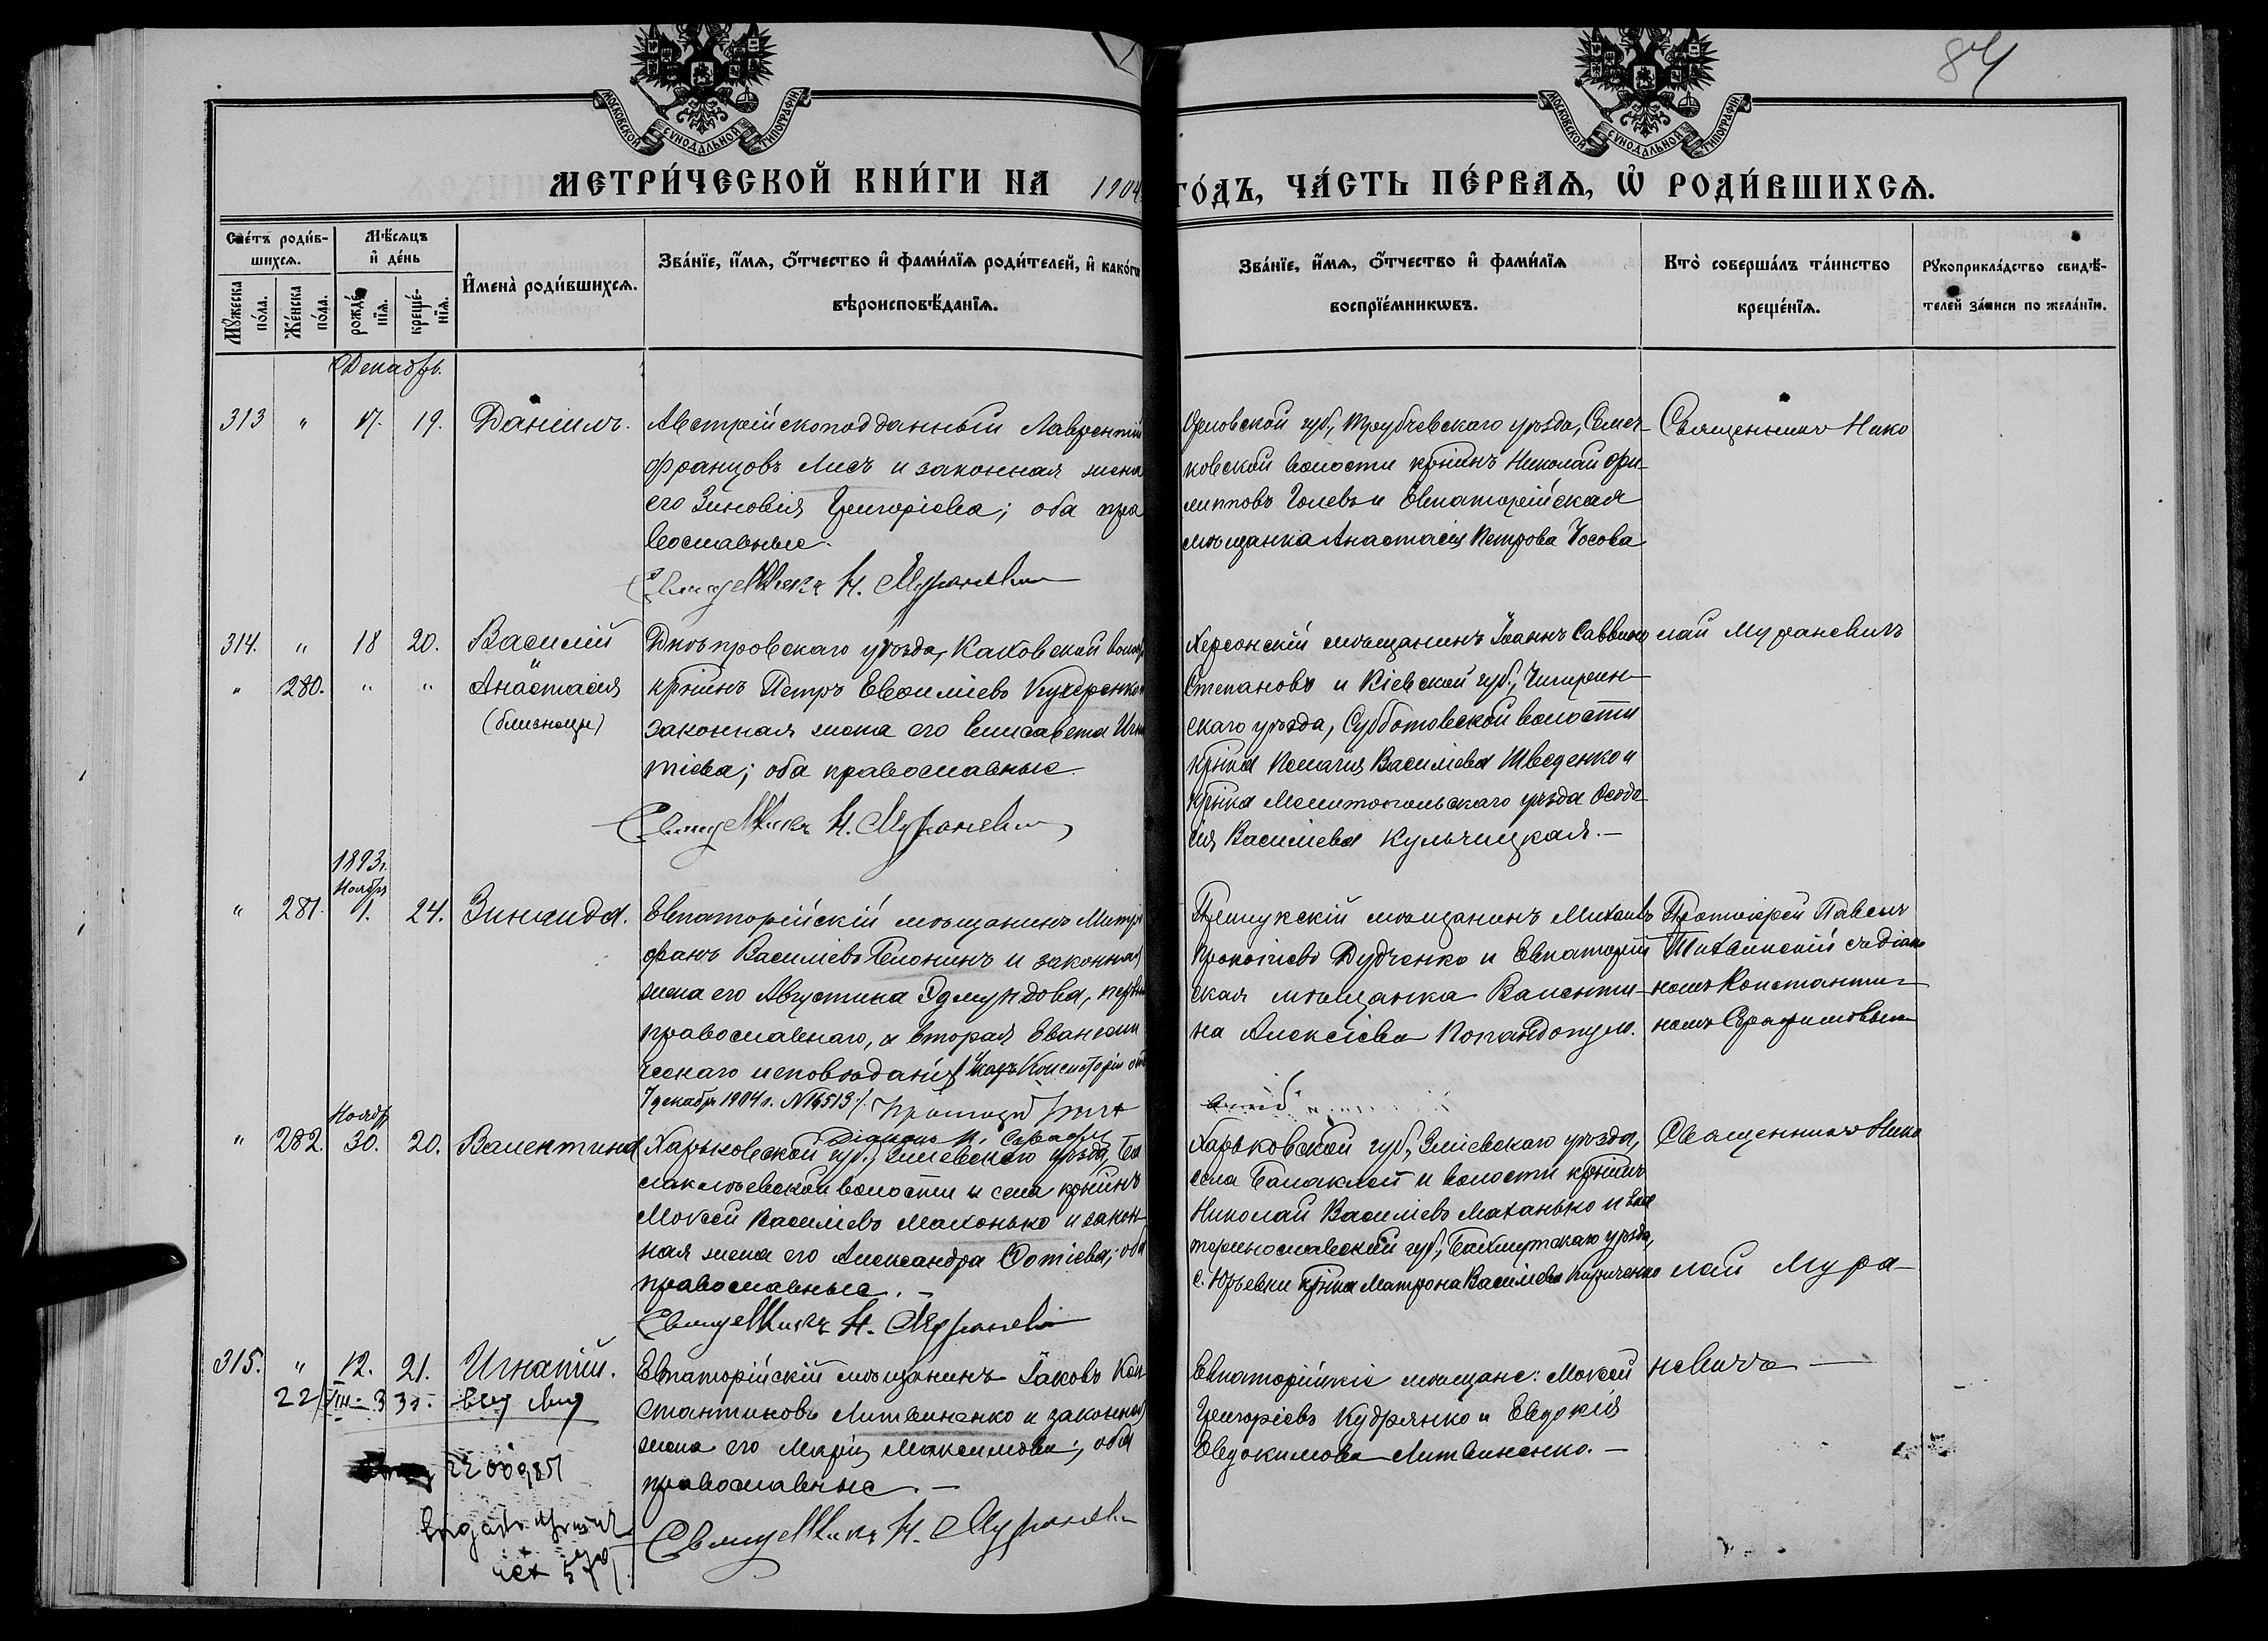 84
МОСКОВСКОЙ СУНОДАЛЬНОЙ ТИПОГРАФІИ
МОСКОВСКОЙ СУНОДАЛЬНОЙ ТИПОГРАФІИ
МЕТРИ́ЧЕСКОЙ КНИ́ГИ НА 1904 ГО́ДЪ, ЧА́СТЬ ПЕ́РВАѦ, Ѡ РОДИ́ВШИХСѦ.
Сче́тъ роди́в-
шихсѧ.
Му́жеска по́ла.
Же́нска по́ла.
Мѣ́сѧцъ и де́нь
рожде́нїѧ.
креще́нїѧ.
Имена̀ роди́вшихсѧ.
Зва́нїе, и́мѧ, ѻ́тчество и фами́лїѧ роди́телей, и како́гѡ
вѣроисповѣ́данїѧ.
Зва́нїе, и́мѧ, ѻ́тчество и фами́лїѧ
воспрїе́мникѡвъ.
Кто̀ соверша́лъ та́инство
креще́нїѧ.
Рꙋкоприкла́дство свидѣ́-
телей за́писи по жела́нїю.
Декабрь.
313 " 17. 19. Даніилъ.
Австрійскоподданный Лаврентій
Францовъ Лисъ и законная жена
его Зиновія Григоріева; оба пра
вославные.
Священникъ Н. Мураневич
Орловской губ., Трубчевскаго уѣзда, Семеч-
ковской волости кр̃нинъ Николай Фи-
липповъ Голевъ и Евпаторійская
мѣщанка Анастасія Петрова Чосова
Священникъ Нико
314. " 18 20. Василій
" 280. " " Анастасія
(близнецы)
Днѣпровскаго уѣзда, Каховской волос
кр̃нинъ Петръ Евфиміевъ Кухаренко и
законная жена его Елисавета Игна
тіева; оба православные.
Священникъ Н. Мураневич
Херсонскій мѣщанинъ Іоаннъ Саввинъ
Степановъ и Кіевской губ., Чигирин-
скаго уѣзда, Субботовской волости
кр̃нка Пелагія Василіева Шведенко и
кр̃нка Мелитопольскаго уѣзда Ѳеодо-
сія Василіева Кульчицкая. —
лай Мураневичъ
1893г.
Ноябрь
" 281. 1. 24. Зинаида.
Евпаторійскій мѣщанинъ Митро
фанъ Василіевъ Блонинъ и законная
жена его Августина Эдмундова, первый
православнаго, а вторая Евангели
ческаго исповѣданія / Указъ Консисторіи отъ
7 декабря 1904 г. № 16513/.
Діаконъ К. Серафи
Прилукскій мѣщанинъ Михаилъ
Прокопіевъ Дудченко и Евпаторій
ская мѣщанка Валенти-
на Алексіева Попандопуло.
Протоіерей Павелъ
Тихвинскій съ діако
номъ Константи-
номъ Серафимовымъ
Ноябр
" 282. 30. 20. Валентина
Харьковской губ., Зміевскаго уѣзда, Ба
лаклѣевской волости и села кр̃нинъ
Мокей Василіевъ Маханько и закон-
ная жена его Александра Фотіева; оба
православные. —
Священникъ Н. Мураневи
Харьковской губ., Зміевскаго уѣзда,
села Балаклеи и волости кр̃нинъ
Николай Василіевъ Маханько и Ека
теринославской губ., Бахмутскаго уѣзда,
с. Юрьевки кр̃нка Матрона Василіева Кириченко
Священникъ Нико
лай Мура-
315. " 12. 21. Игнатій.
Евпаторійскій мѣщанинъ Іаковъ Кон
стантиновъ Литвиненко и законная
жена его Марія Максимова; оба
православные. —
Священникъ Н. Мураневи
Евпаторійскіе мѣщане: Мокей
Григоріевъ Кудрянко и Евдокія
Евдокимова Литвиненко. —
невичъ —
22/VIII-33г.